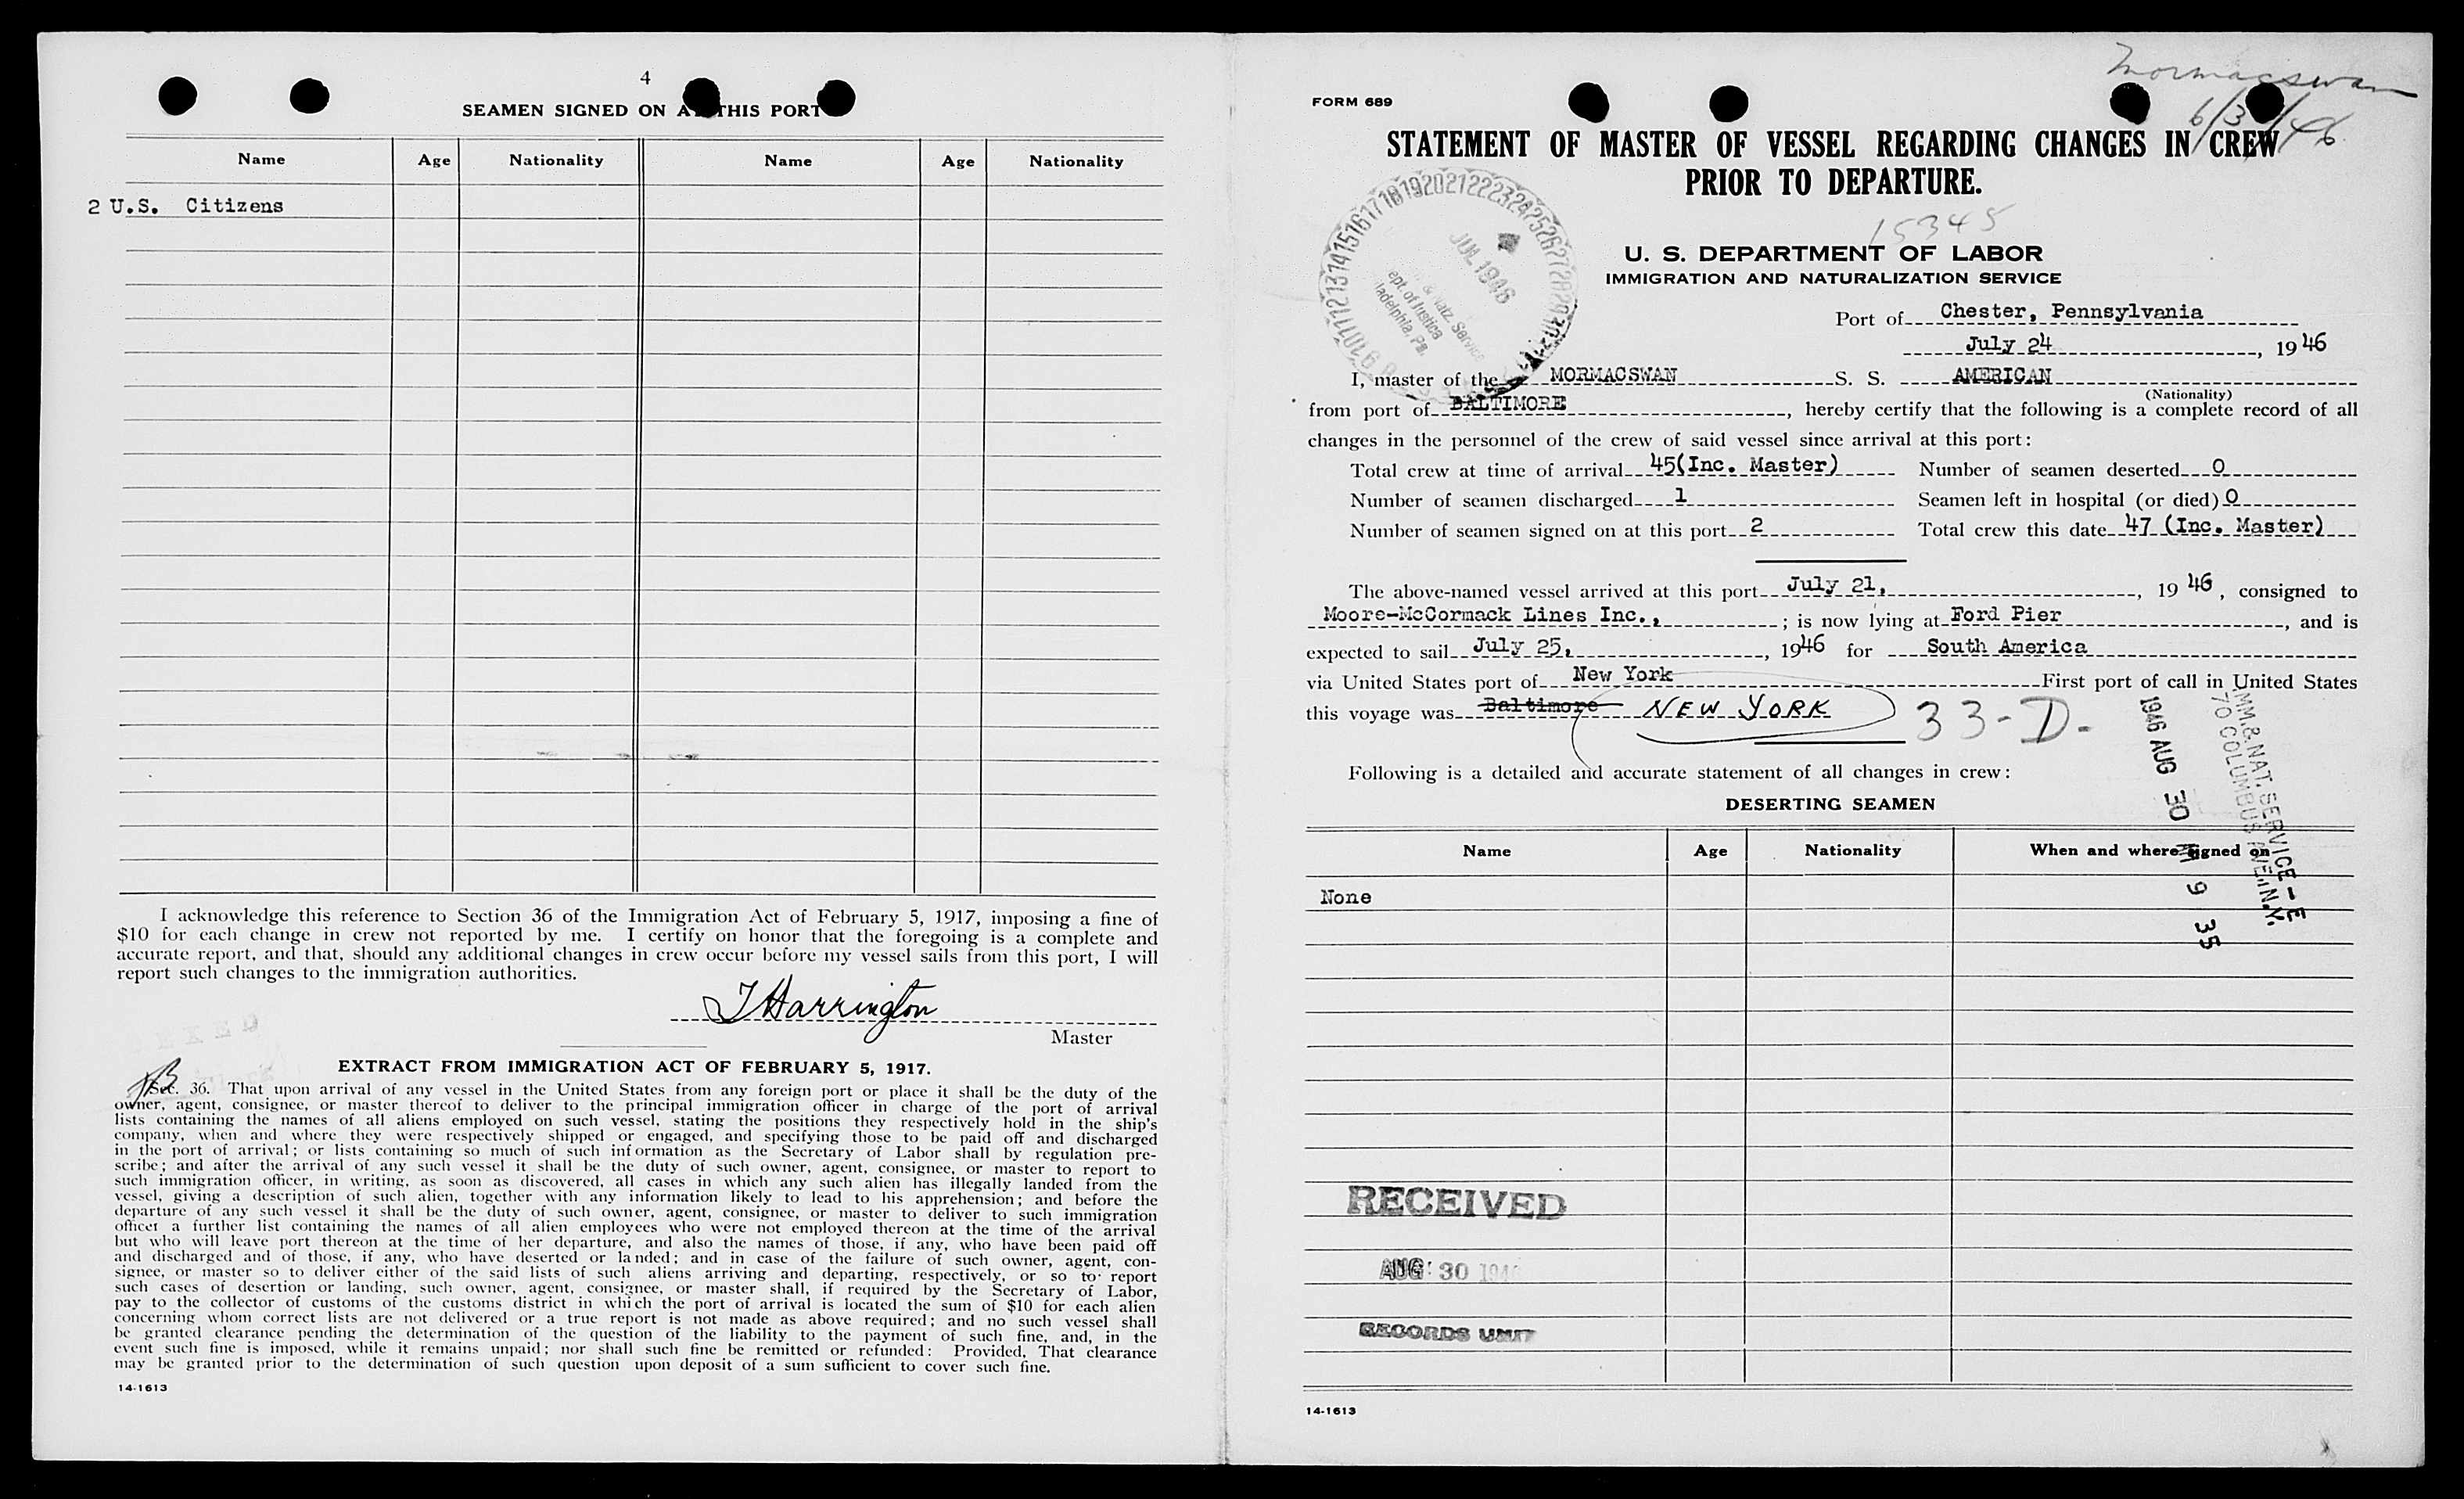 4
SEAMEN SIGNED ON A THIS PORT
Name Age Nationality Name Age Nationality
2 U.S. Citizens
I acknowledge this reference to Section 36 of the Immigration Act of February 5, 1917, imposing a fine of
$10 for each change in crew not reported by me. I certify on honor that the foregoing is a complete and
accurate report, and that, should any additional changes in crew occur before my vessel sails from this port, I will
report such changes to the immigration authorities.
J Harrington
Master
EXTRACT FROM IMMIGRATION ACT OF FEBRUARY 5, 1917.
Sec. 36. That upon arrival of any vessel in the United States from any foreign port or place it shall be the duty of the
owner, agent, consignee, or master thereof to deliver to the principal immigration officer in charge of the port of arrival
lists containing the names of all aliens employed on such vessel, stating the positions they respectively hold in the ship's
company, when and where they were respectively shipped or engaged, and specifying those to be paid off and discharged
in the port of arrival; or lists containing so much of such information as the Secretary of Labor shall by regulation pre-
scribe; and after the arrival of any such vessel it shall be the duty of such owner, agent, consignee, or master to report to
such immigration officer, in writing, as soon as discovered, all cases in which any such alien has illegally landed from the
vessel, giving a description of such alien, together with any information likely to lead to his apprehension; and before the
departure of any such vessel it shall be the duty of such owner, agent, consignee, or master to deliver to such immigration
officer a further list containing the names of all alien employees who were not employed thereon at the time of the arrival
but who will leave port thereon at the time of her departure, and also the names of those, if any, who have been paid off
and discharged and of those, if any, who have deserted or landed; and in case of the failure of such owner, agent, con-
signee, or master so to deliver either of the said lists of such aliens arriving and departing, respectively, or so to report
such cases of desertion or landing, such owner, agent, consignee, or master shall, if required by the Secretary of Labor,
pay to the collector of customs of the customs district in which the port of arrival is located the sum of $10 for each alien
concerning whom correct lists are not delivered or a true report is not made as above required; and no such vessel shall
be granted clearance pending the determination of the question of the liability to the payment of such fine, and, in the
event such fine is imposed, while it remains unpaid; nor shall such fine be remitted or refunded: Provided, That clearance
may be granted prior to the determination of such question upon deposit of a sum sufficient to cover such fine.
14-1613
Mormacswan
FORM 689
STATEMENT OF MASTER OF VESSEL REGARDING CHANGES IN CREW
PRIOR TO DEPARTURE.
15345
U. S. DEPARTMENT OF LABOR
IMMIGRATION AND NATURALIZATION SERVICE
JUL 1946
Port of Chester, Pennsylvania
July 24, 1946
I, master of the MORMACSWAN S. S. AMERICAN
(Nationality)
from port of BALTIMORE, hereby certify that the following is a complete record of all
changes in the personnel of the crew of said vessel since arrival at this port:
Total crew at time of arrival 45(Inc. Master) Number of seamen deserted 0
Number of seamen discharged 1 Seamen left in hospital (or died) 0
Number of seamen signed on at this port 2 Total crew this date 47 (Inc. Master)
The above-named vessel arrived at this port July 21, , 1946, consigned to
Moore-McCormack Lines Inc., ; is now lying at Ford Pier, and is
expected to sail July 25, , 1946 for South America
via United States port of New York First port of call in United States
this voyage was Baltimore NEW YORK 33-D-
IMM. & NAT. SERVICE - E
70 COLUMBUS AVE., N.Y.
1946 AUG 30 AM 9 35
Following is a detailed and accurate statement of all changes in crew:
DESERTING SEAMEN
Name Age Nationality When and where signed on
None
RECEIVED
AUG 30 1946
RECORDS UNIT
14-1613